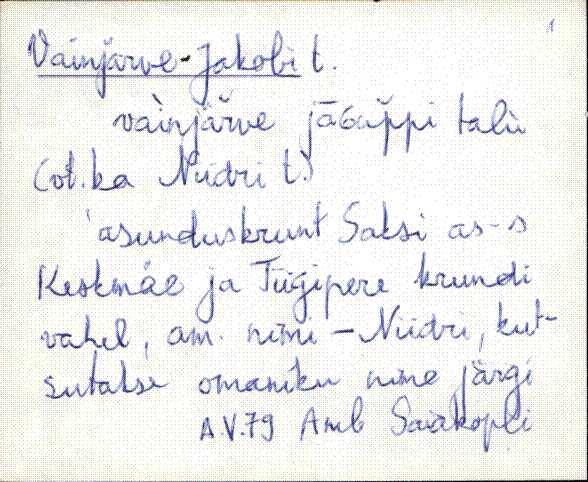 Vainjärve-Jakobi t.
vàinjäŕve jāGuppi talù
(vt. ka Niidri t.)
asunduskrunt Saksi as-s
Keskmäe ja Tiigipere krundi
vahel, am. nimi - Niidri, kut-
sutakse omaniku nime järgi
A.V.79 Amb Sääskopli